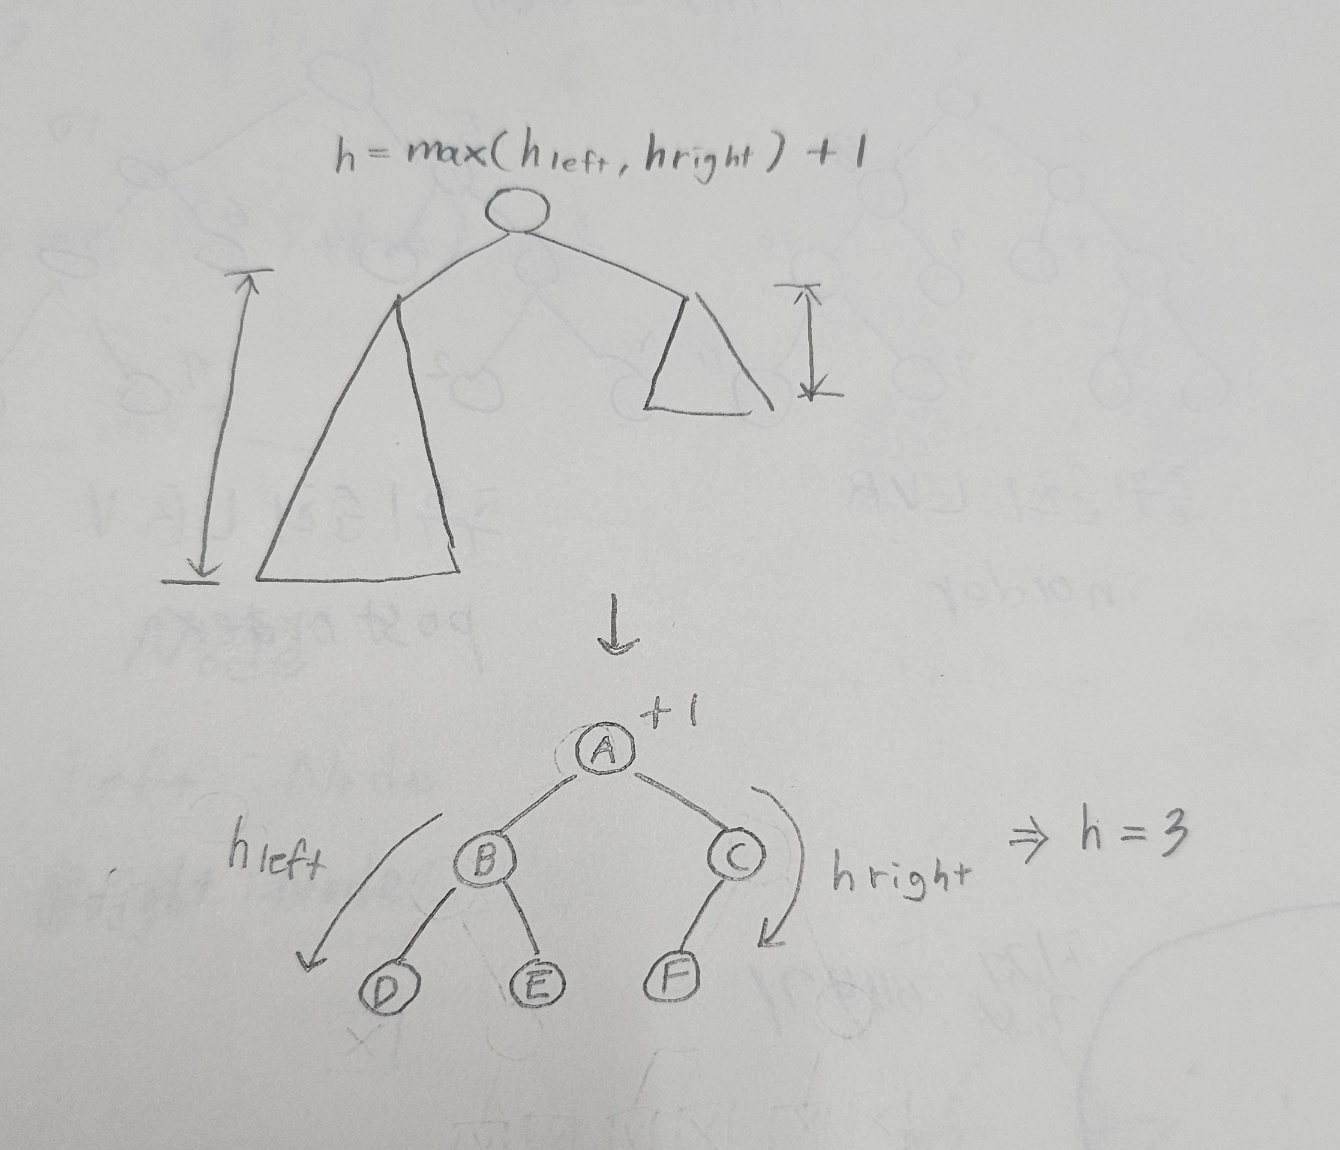 h = max(h left, h right) + 1
+1
A
h left
B
C
h right
⇒ h = 3
D
E
F